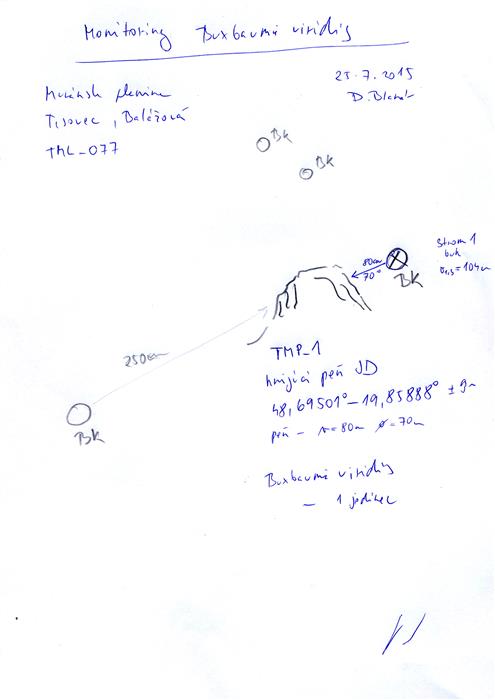 Monitoring Buxbaumia viridis
25.7.2015
Muránska planina
D. Blanár
Tisovec, Balážová
TML_077
BK
BK
Strom 1
buk
80cm
70°
BK
O1,3 = 104cm
250cm
BK
TMP_1
hnijúci peň JD
48,69501° – 19,85888° ± 9m
peň – v=80cm ø=70cm
Buxbaumia viridis
– 1 jedinec